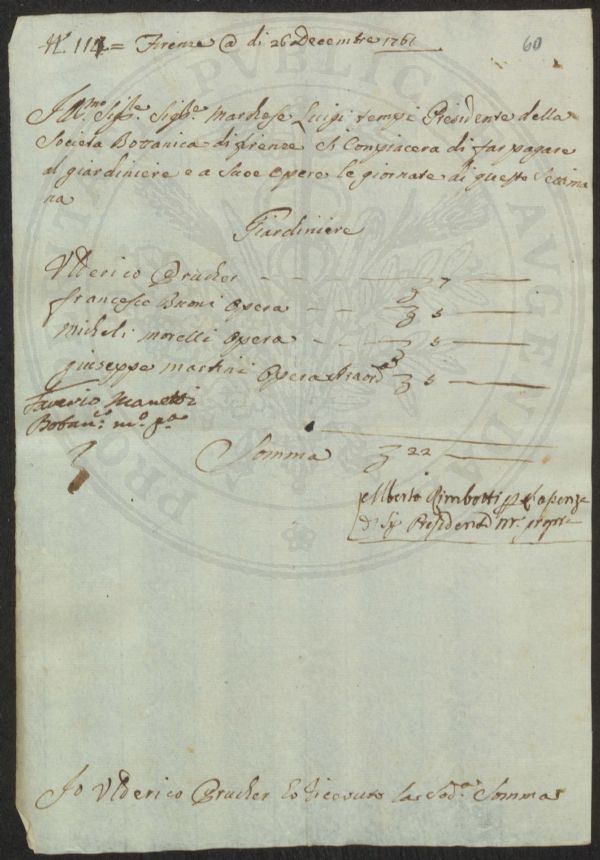 N.º 114 = Firenze @ di 26 Decembre 1761
60
Ill.mo Sig.re Sig.re Marchese Luigi tempi Presidente della
Societa Bottanica di firenze Si Conpiacera di far pagare
al giardiniere e a Suoe opere le giornate di questa Settima
na
Giardiniere
Ulderico Prucher - - 7
francesco Buoni Opera - - 5
Micheli Morelli Opera - - 5
giuseppe Martini Opera straord.a 5
Saverio Manetti
Botan.co m.o p.a
Somma 22
Alberto Rimbotti per l'assenza
di Sig. Presidente m. propr.
Io Ulderico Prucher ho riceuuto la Sod.a Somma
PVBLICAE
AVGENDAE